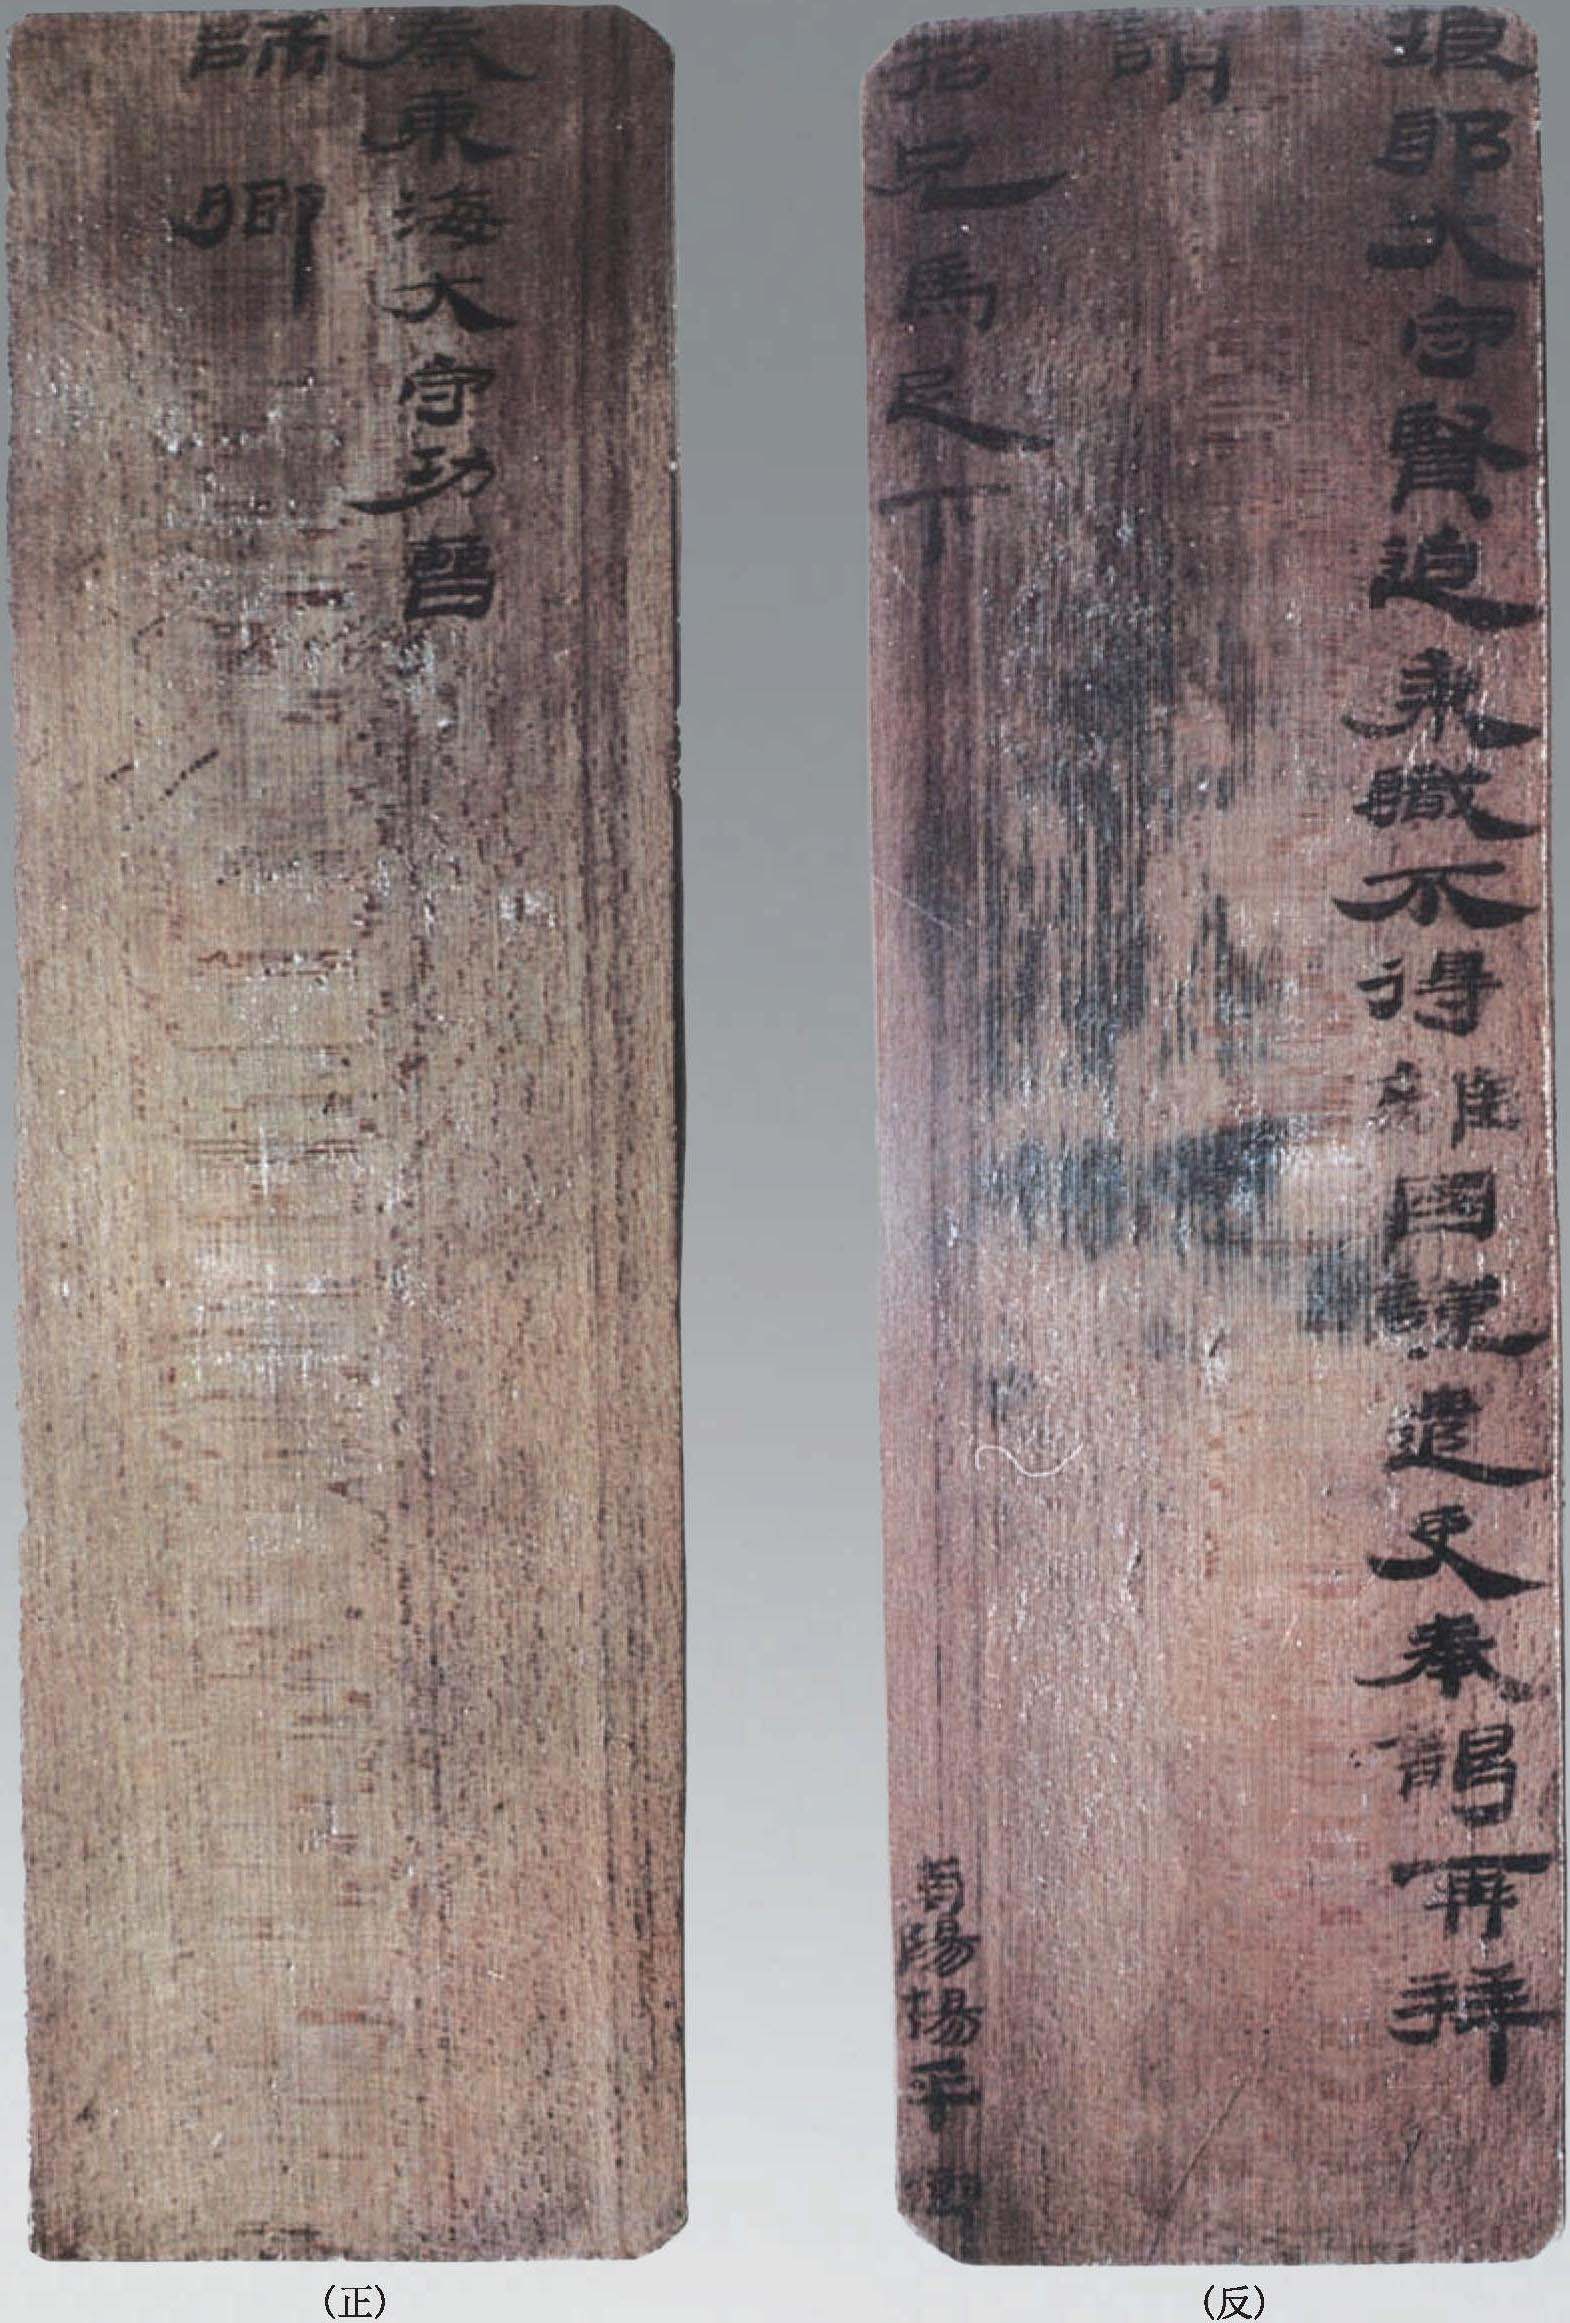 奏東海大守功曹
師卿
(正)
琅邪大守賢迫秉職不得離國謹遣吏奉謁再拜
請
君兄馬足下 南陽楊平卿
(反)